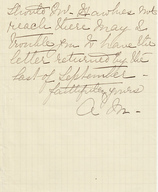 Should Mr. Hawkes not
reach there may I
trouble you to have the
letter returned by the
last of September -
faithfully yours
A